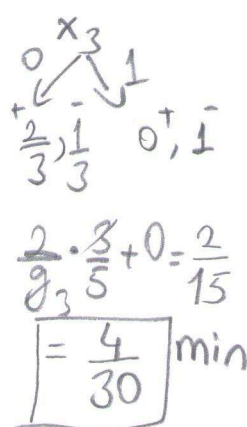 x₃
0 1
+ - + -
2/3, 1/3 0, 1
2/9 · 3/5 + 0 = 2/15
3
= 4/30 min